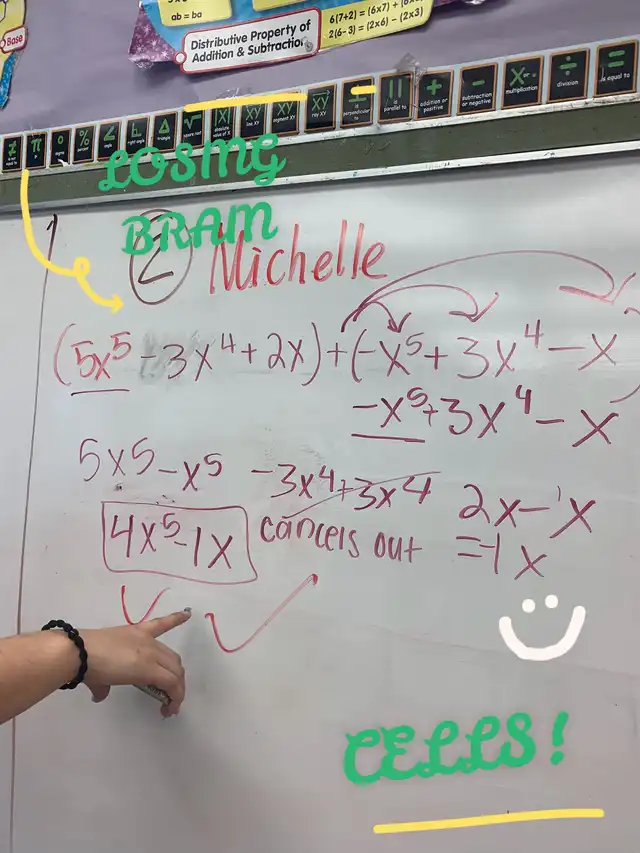 ab = ba
Base
Distributive Property of
Addition & Subtraction
6(7+2) = (6x7) + (6x
2(6-3) = (2x6) - (2x3)
π % √ |X| XY XY XY || + - X or ÷ =
square root
is parallel to
addition or positive
subtraction or negative
multiplication
division
is equal to
LOSMG
BRAM
② Michelle
(5x⁵ - 3x⁴ + 2x) + (-x⁵ + 3x⁴ - x
-x⁵ + 3x⁴ - x
5x5 - x⁵ -3x⁴ + 3x⁴ 2x - 1x
4x⁵ - 1x cancels out = -1x
CELLS!